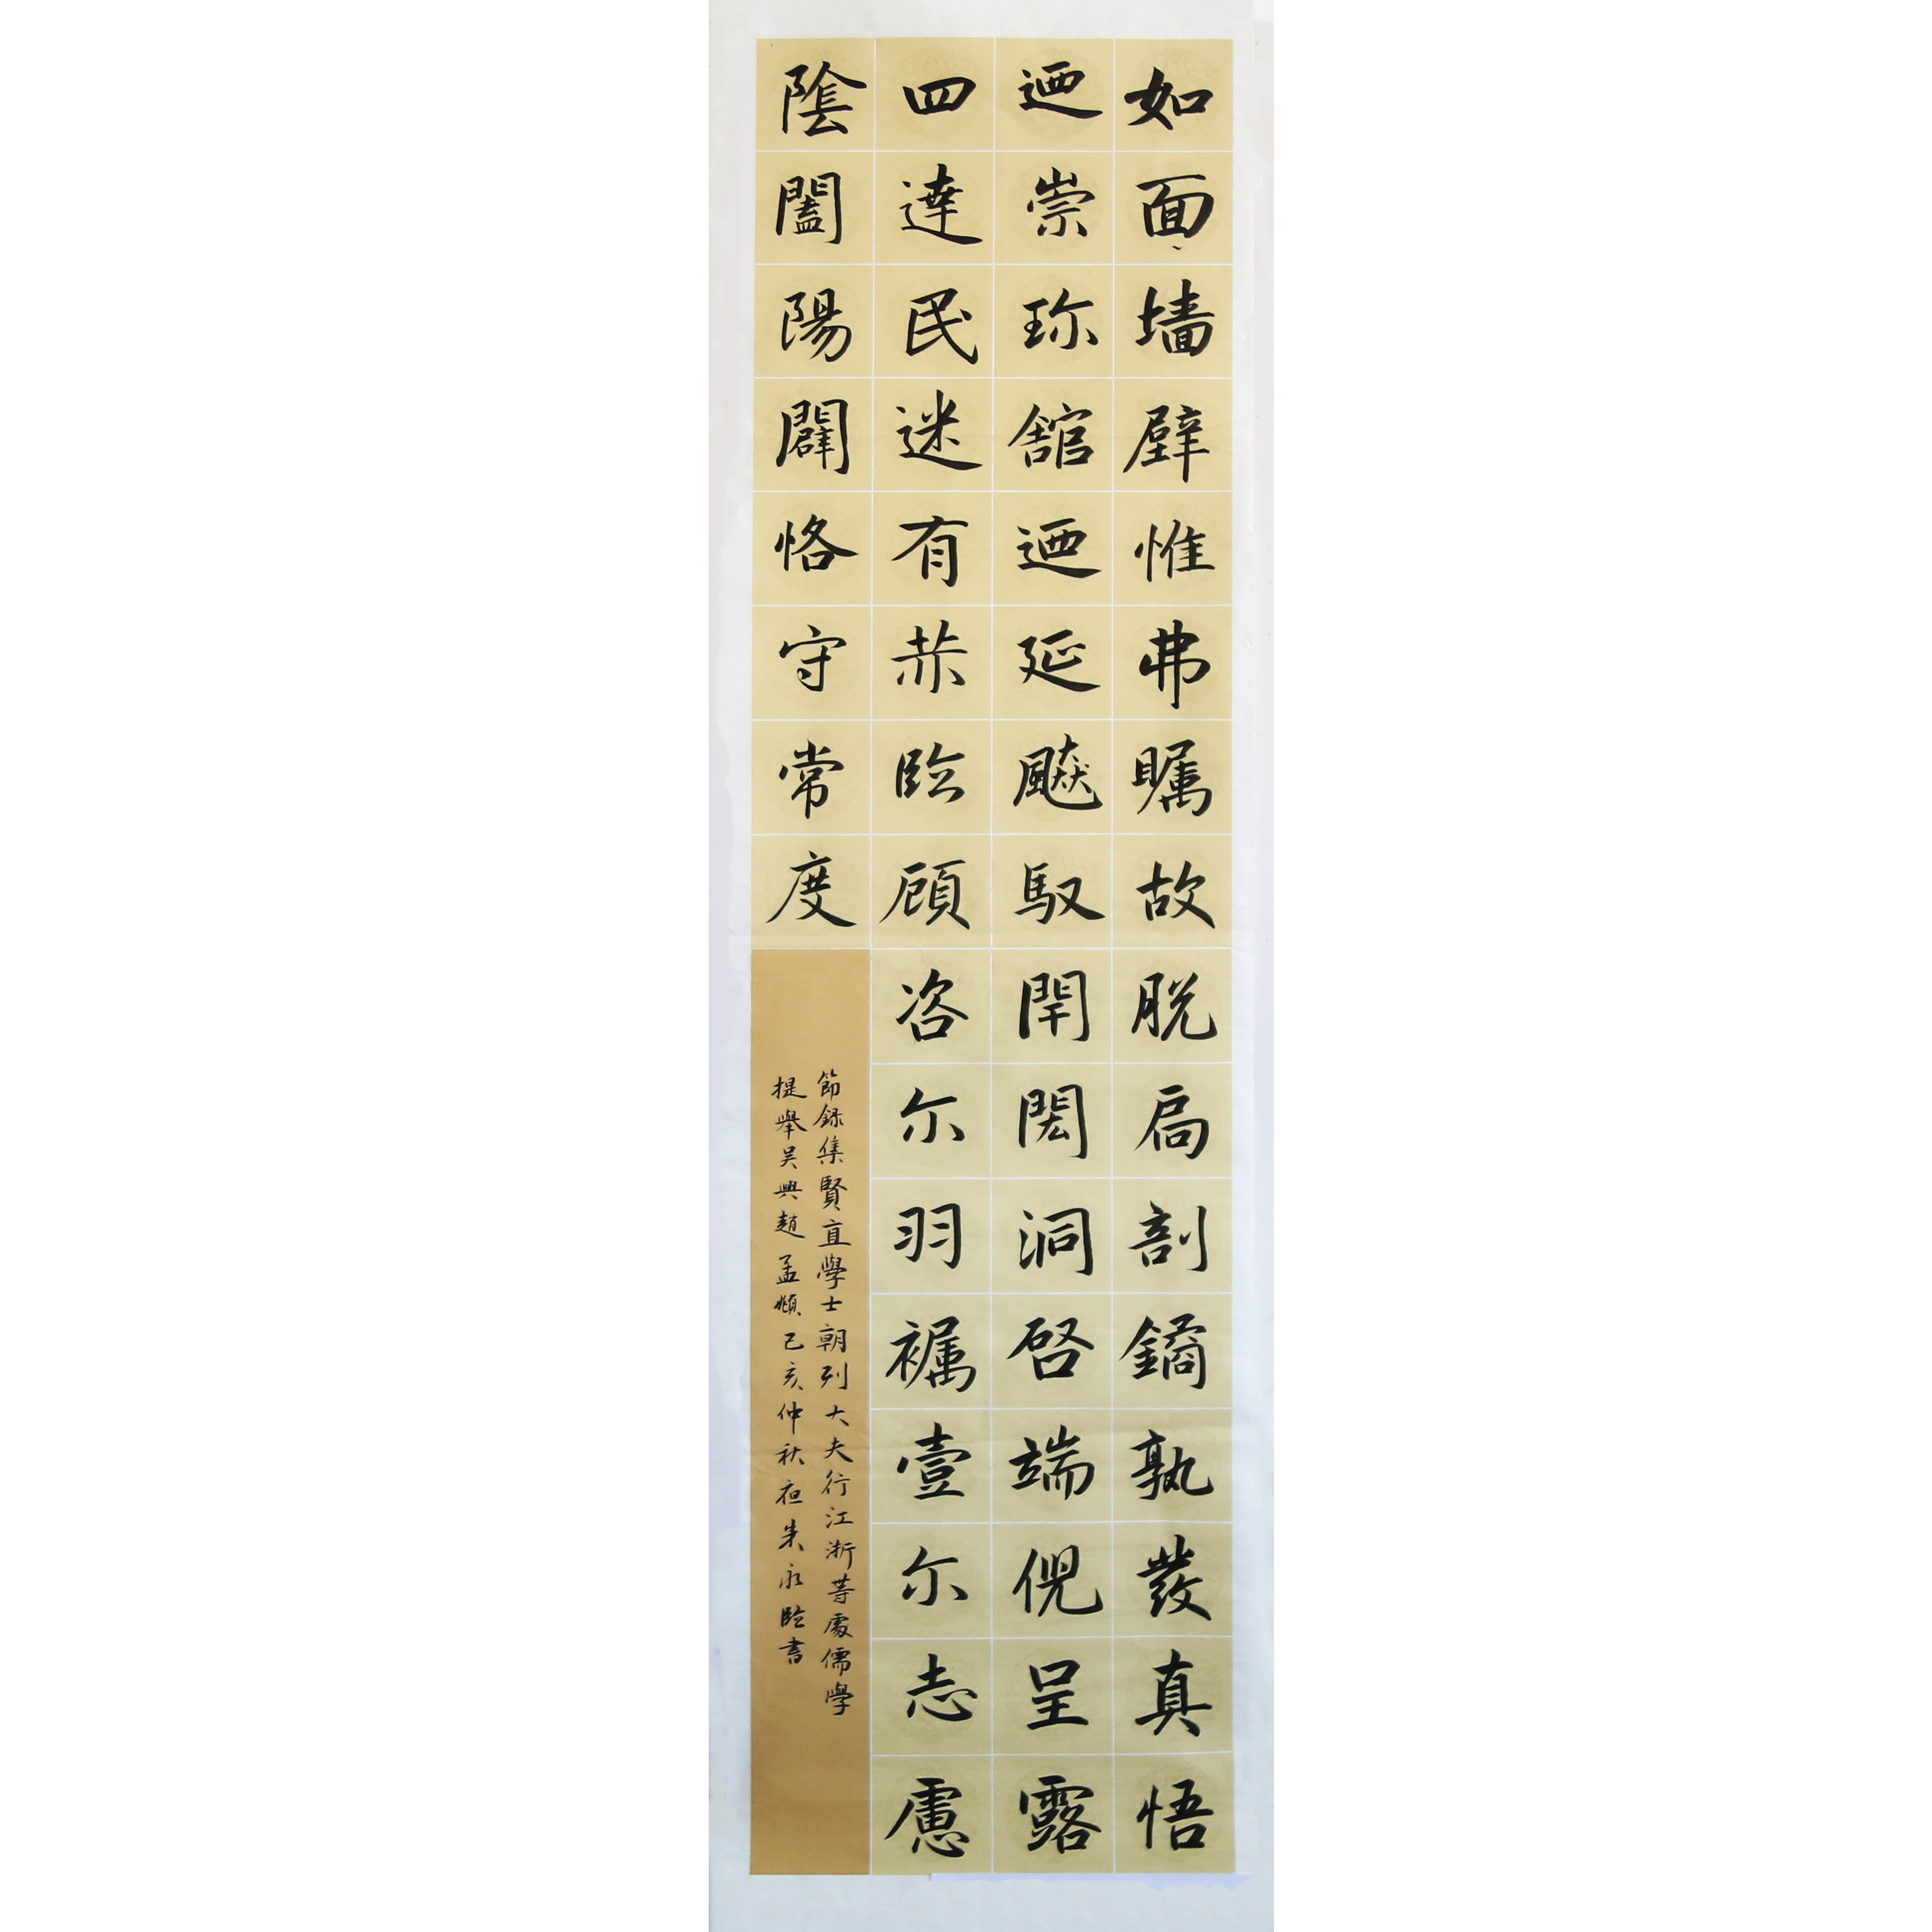 如面墙壁惟弗瞩故脱扃剖鐍孰發真悟
迺崇珎舘迺延飈馭閈閎洞啓端倪呈露
四達民迷有赫臨顧咨尔羽襡壹尔志慮
陰闔陽闢恪守常度
節録集賢直學士朝列大夫行江浙等處儒學
提舉吴興趙孟頫己亥仲秋夜朱永臨書